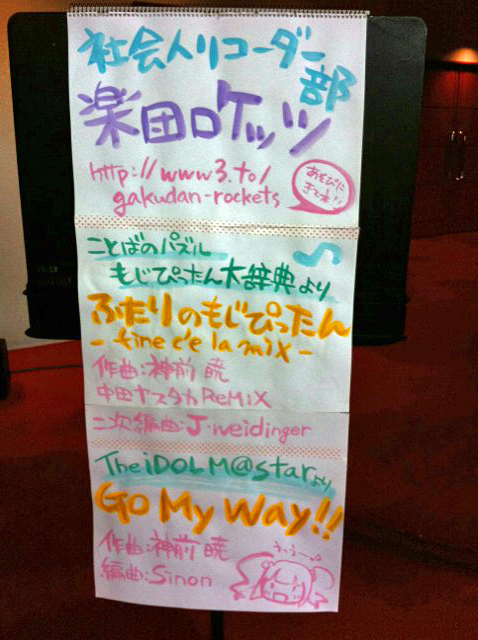 社会人リコーダー
部
楽団ロケッツ
http://www3.to/
gakudan-rockets
あそびに
きてネ!!
ことばのパズル
もじぴったん大辞典より
ふたりのもじぴったん
- fine c'e la mix -
作曲:神前 暁
中田ヤスタカ ReMiX
二次編曲:J・weidinger
The iDOLM@starより
GO MY WAY!!
作曲:神前 暁
編曲:Sinon
うっうー